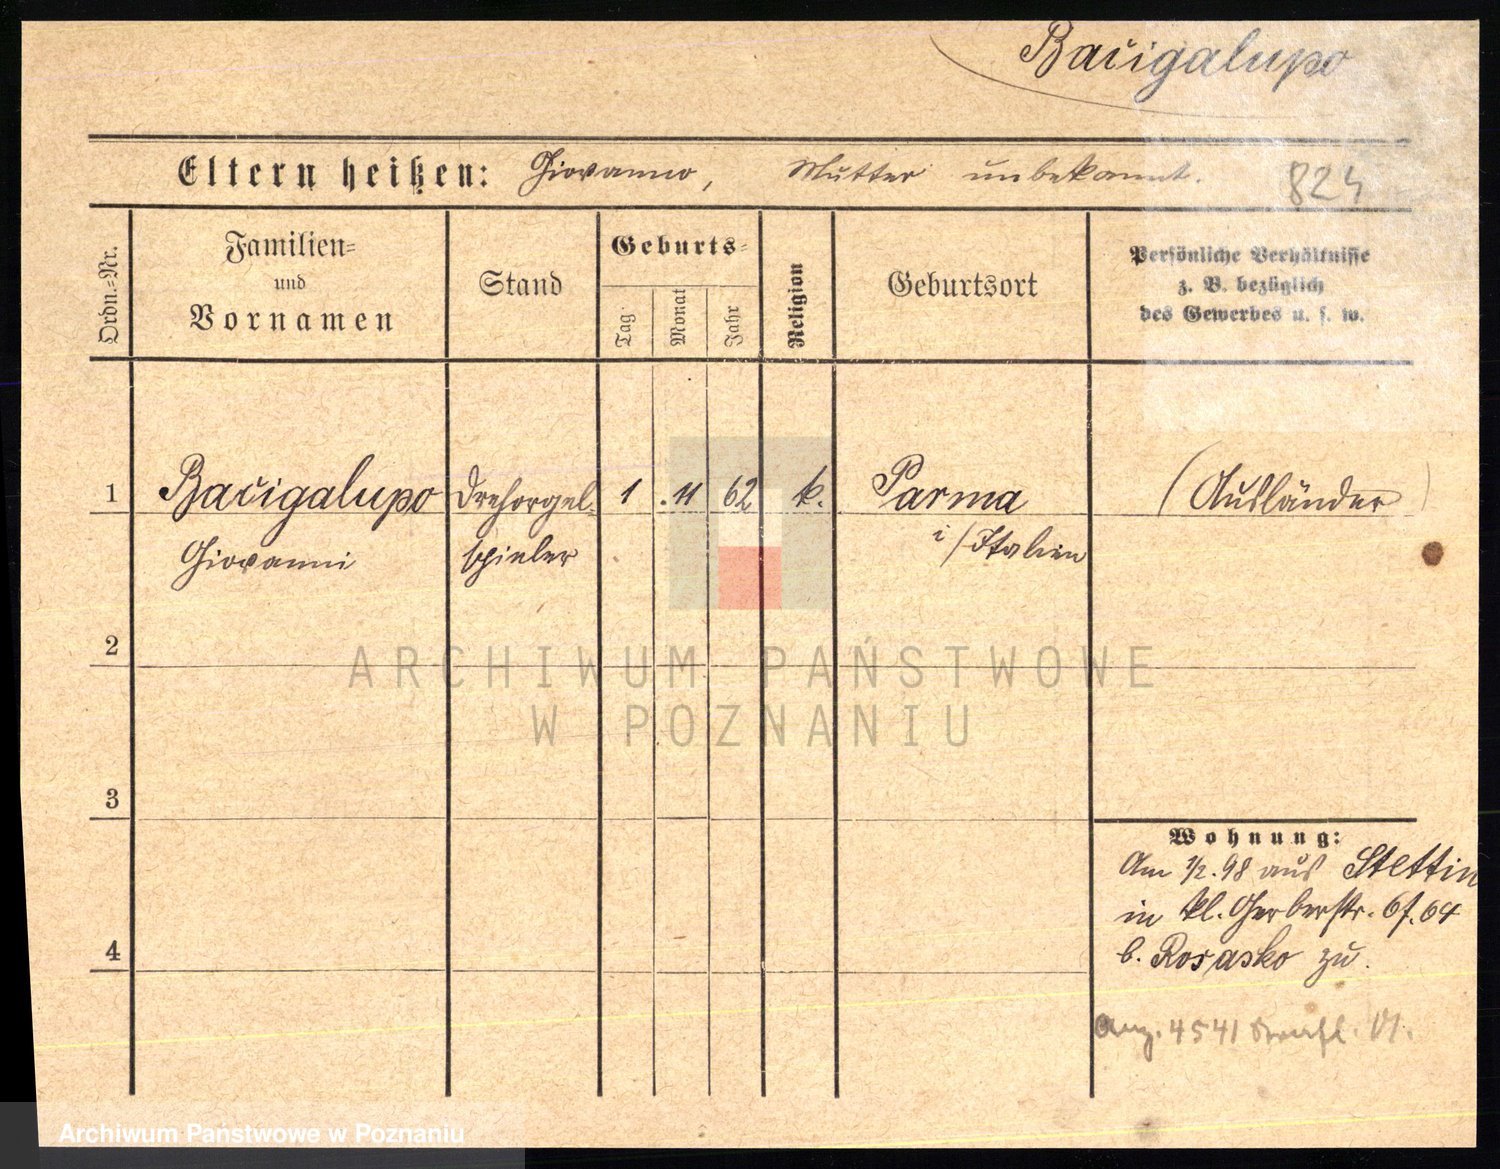 Bacigalupo
Eltern heißen: Giovanno, Mutter unbekannt.
824
Ordn.-Nr.
Familien-
und
Vornamen
Stand
Geburts-
Tag
Monat
Jahr
Religion
Geburtsort
Persönliche Verhältnisse
z. B. bezüglich
des Gewerbes u. s. w.
1 Bacigalupo Drehorgel- 1 .11 62 k. Parma (Ausländer)
Giovanni spieler i/Italien
2
ARCHIWUM PAŃSTWOWE
W POZNANIU
3
Wohnung:
Am 1/2.98 aus Stettin
in kl. Gerberstr.
4
b. Rosasko zu.
4541
Archiwum Państwowe w Poznaniu